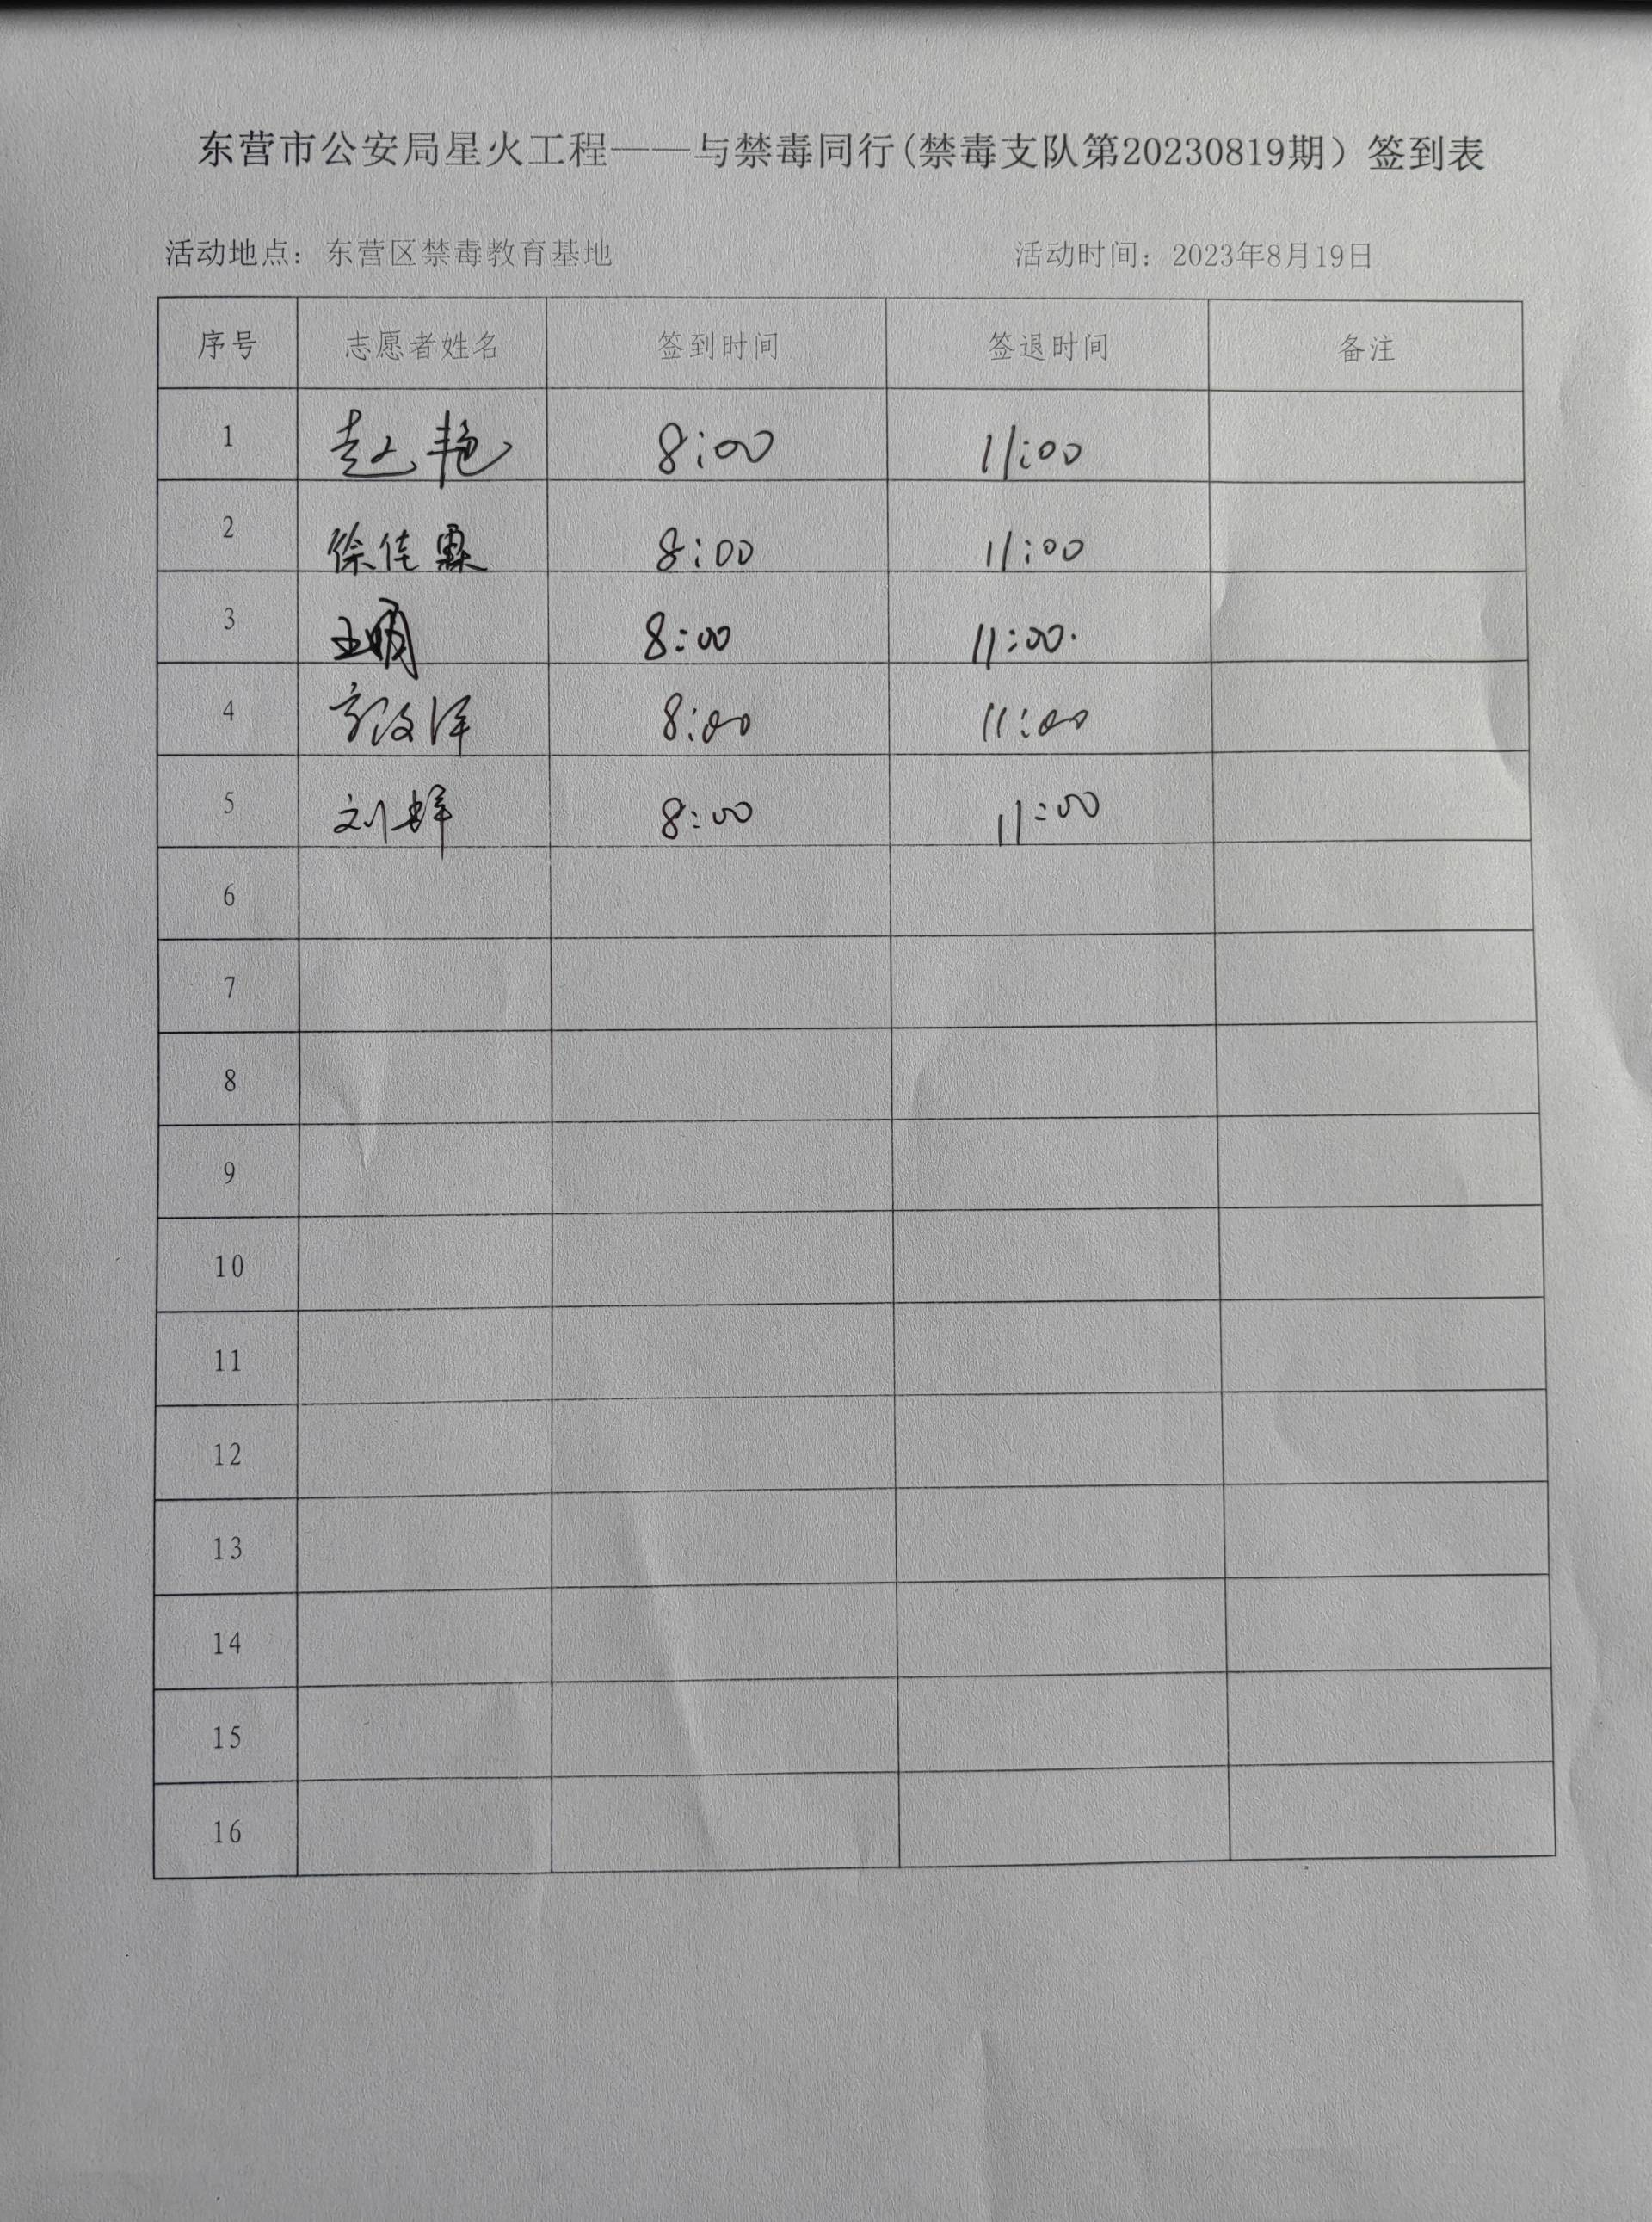 东营市公安局星火工程——与禁毒同行(禁毒支队第20230819期）签到表
活动地点：东营区禁毒教育基地 活动时间：2023年8月19日
序号 志愿者姓名 签到时间 签退时间 备注
1 赵艳 8:00 11:00
2 徐佳霖 8:00 11:00
3 8:00 11:00.
4 8:00 11:00
5 刘 8:00 11:00
6
7
8
9
10
11
12
13
14
15
16